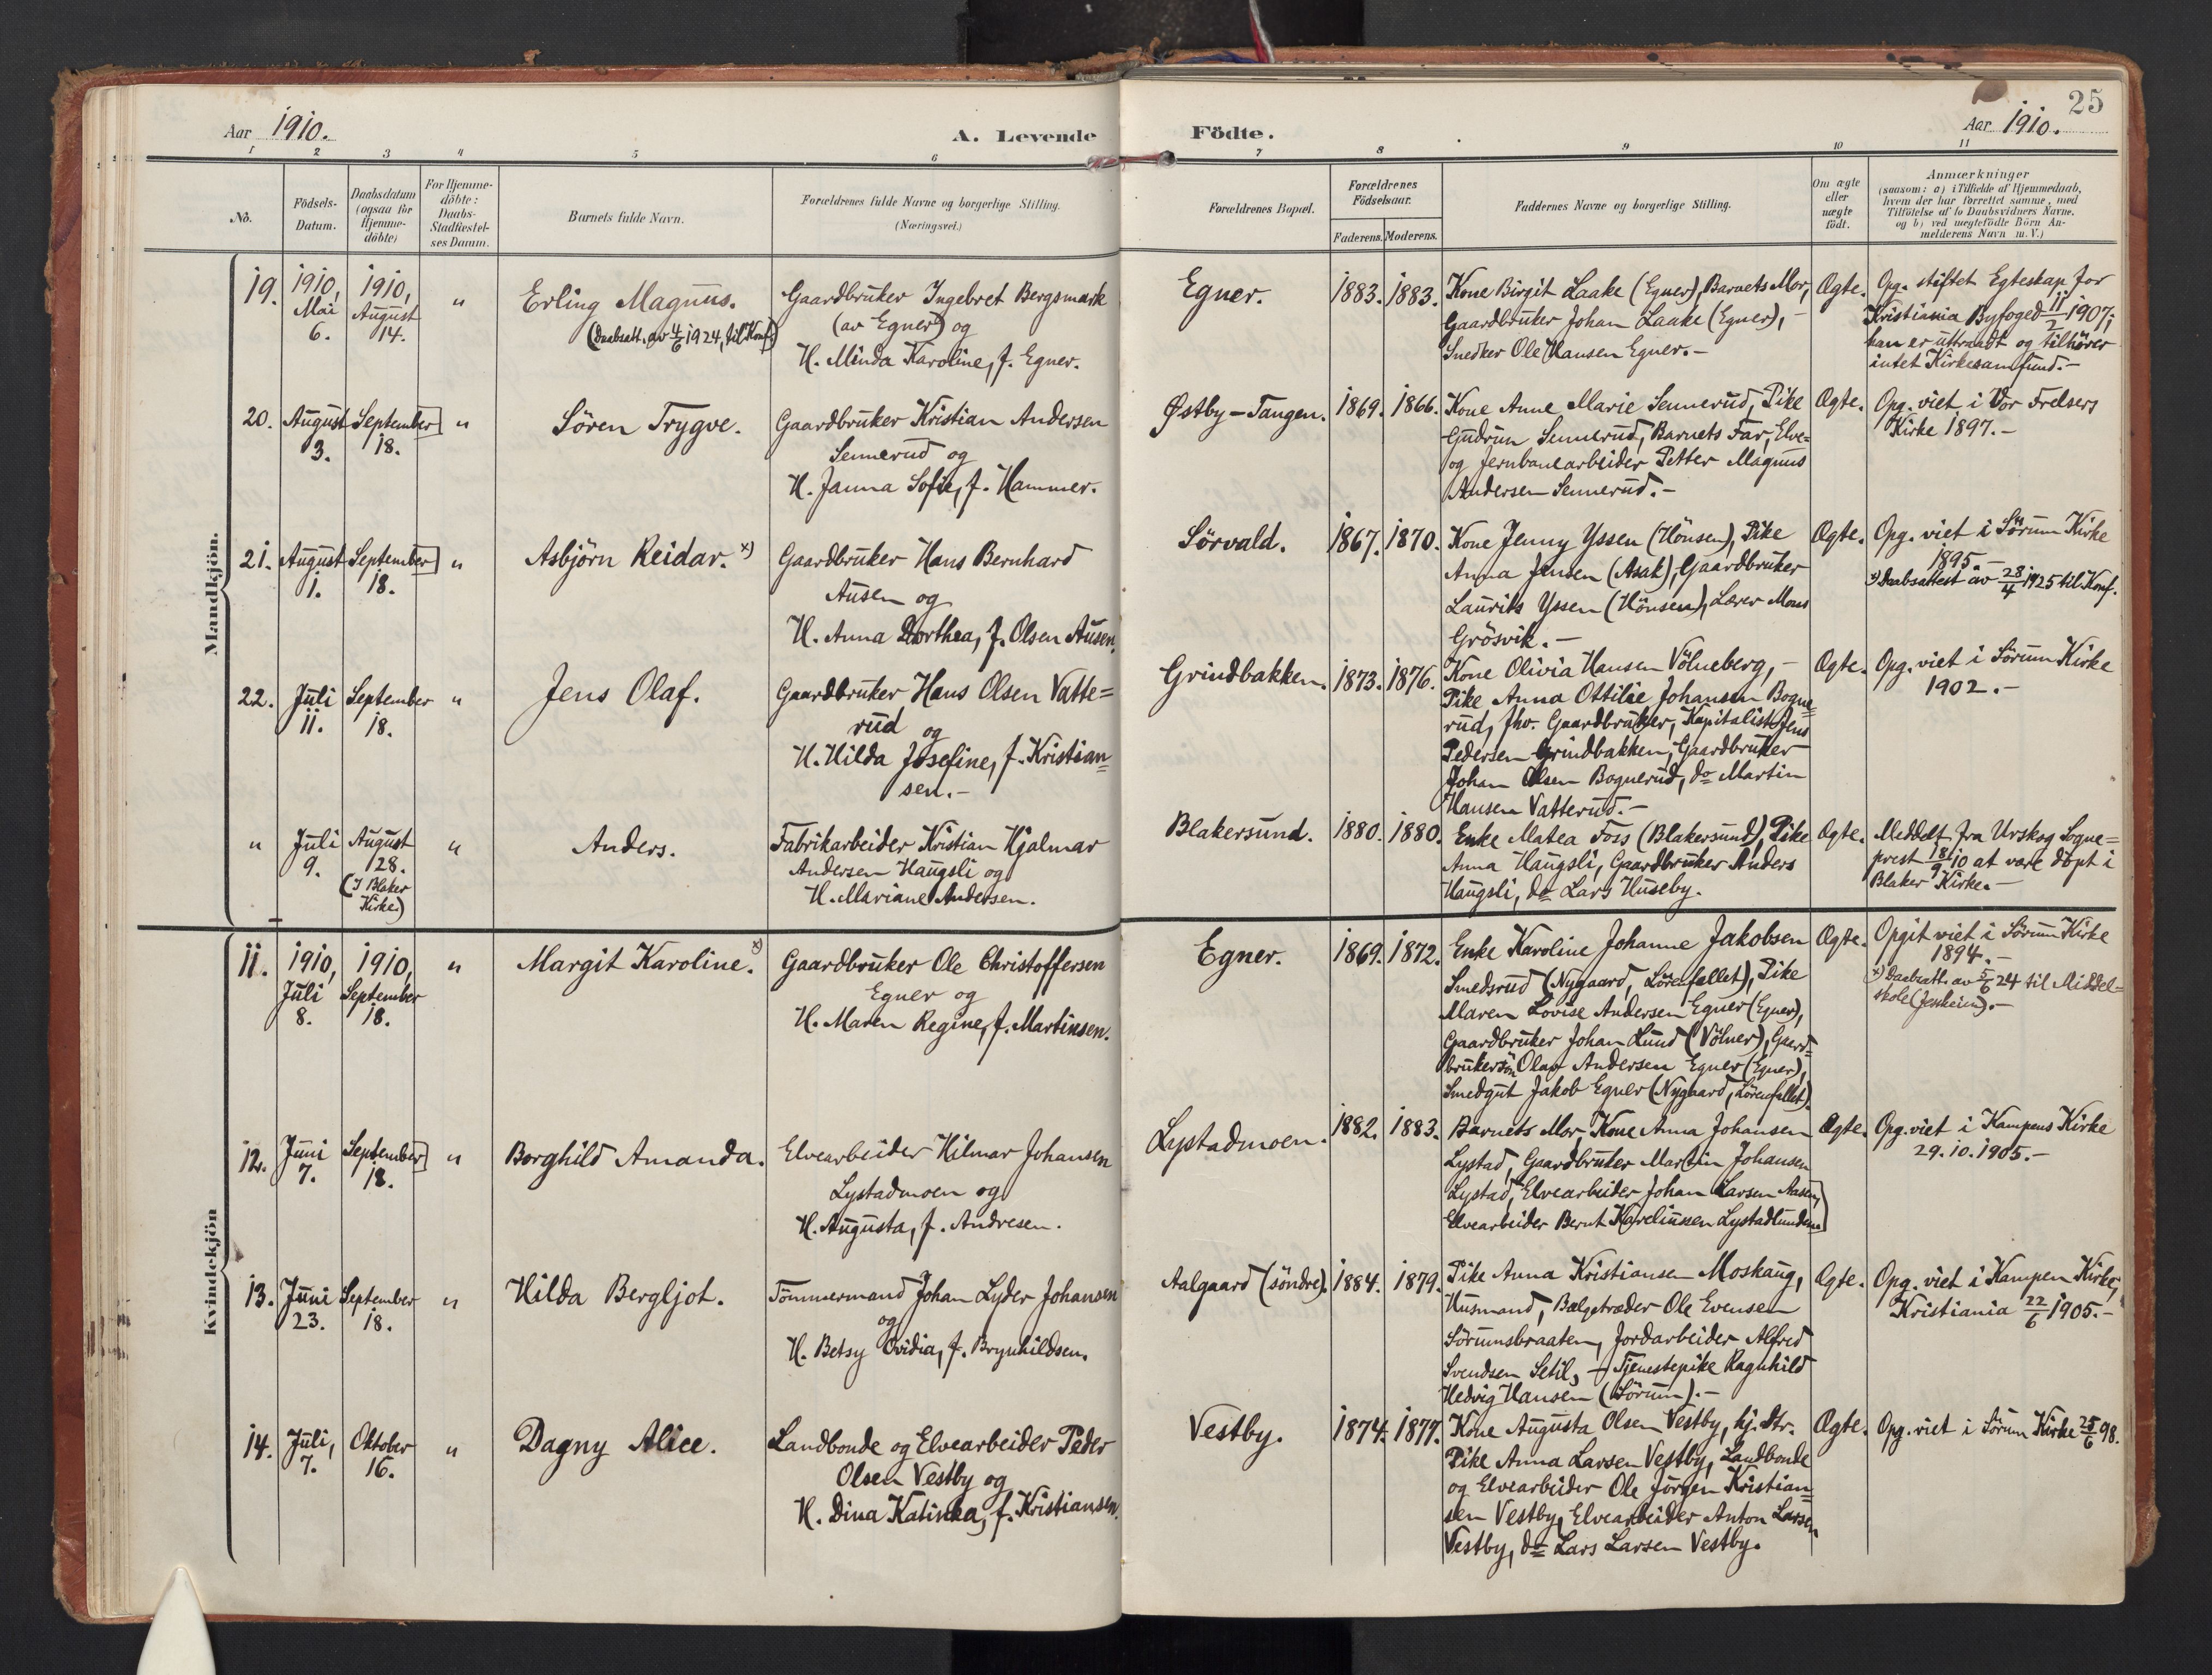 25
Aar 1910.
A. Levende
Födte.
Aar 1910.
1 2 3 4 5 6 7 8 9 10 11
No.
Födsels-
Datum.
Daabsdatum
(ogsaa for
Hjemme-
döbte)
For Hjemme-
döbte:
Daabs-
Stadfæstel-
ses Datum.
Barnets fulde Navn.
Forældrenes fulde Navne og borgerlige Stilling.
(Næringsvei.)
Forældrenes Bopæl.
Forældrenes
Födselsaar.
Faderens. Moderens.
Faddernes Navne og borgerlige Stilling.
Om ægte
eller
uægte
födt.
Anmærkninger
(saasom: a) i Tilfælde af Hjemmedaab,
hvem der har forrettet samme, med
Tilföielse af to Daabsvidners Navne,
og b) ved uegtefödte Börn An-
melderens Navn m. V.)
Mandkjön.
19.
1910,
Mai
6.
1910,
August
14.
"
Erling Magnus.
(Daabsatt. av 4/6 1924, til Konf.)
Gaardbruker Ingebret Bergsmark
(av Egner) og
H. Minda Karoline, f. Egner.
Egner.
1883. 1883.
Kone Birgit Laake (Egner), Barnets Mor,
Gaardbruker Johan Laake (Egner), –
Snedker Ole Hansen Egner. –
Ægte.
Opg. stiftet Egteskap for
Kristiania Byfoged 11/2 1907;
han er uttraadt og tilhører
intet Kirkesamfund. –
20.
August
3.
September
18.
"
Sören Trygve.
Gaardbruker Kristian Andersen
Sennerud og
H. Janna Sofie, f. Hammer.
Østby – Tangen.
1869. 1866.
Kone Anne Marie Sennerud, Pike
Gudrun Sennerud, Barnets Far, Elve=
og Jernbanearbeider Petter Magnus
Andersen Sennerud. –
Ægte.
Opg. viet i Vor Frelsers
Kirke 1897. –
21.
August
1.
September
18.
"
Asbjörn Reidar. x)
Gaardbruker Hans Bernhard
Ausen og
H. Anna Dorthea, f. Olsen Ausen.
Sörvald.
1867. 1870.
Kone Jenny Yssen (Hönsen), Pike
Anna Jensen (Asak), Gaardbruker
Laurits Yssen (Hönsen), Lærer Mons
Grösvik. –
Ægte.
Opg. viet i Sörum Kirke
1895. –
x) Daabsattest av 28/4 1925 til Konf.
22.
Juli
11.
September
18.
"
Jens Olaf.
Gaardbruker Hans Olsen Vatte=
rud og
H. Hilda Josefine, f. Kristian=
sen. –
Grindbakken.
1873. 1876.
Kone Olivia Hansen Völneberg, –
Pike Anna Ottilie Johansen Bogne=
rud, fhv. Gaardbruker, Kapitalist Jens
Pedersen Grindbakken, Gaardbruker
Johan Olsen Bognerud, do Martin
Hansen Vatterud. –
Ægte.
Opg. viet i Sörum Kirke
1902. –
"
Juli
9.
August
28.
(I Blaker
Kirke)
"
Anders.
Fabrikarbeider Kristian Hjalmar
Andersen Haugsli og
H. Mariane Andersen.
Blakersund.
1880. 1880.
Enke Matea Foss (Blakersund), Pike
Anna Haugsli, Gaardbruker Anders
Haugsli, do Lars Huseby.
Ægte.
Meddelt fra Urskog Sogne=
prest 18/9 10 at være döpt i
Blaker Kirke. –
Kvindekjön
11.
1910,
Juli
8.
1910,
September
18.
"
Margit Karoline. x)
Gaardbruker Ole Christoffersen
Egner og
H. Maren Regine, f. Martinsen.
Egner.
1869. 1872.
Enke Karoline Johanne Jakobsen
Smedsrud (Nygaard, Lörenfallet), Pike
Maren Lovise Andersen Egner (Egner),
Gaardbruker Johan Lund (Völner), Gaard=
brukersön Olav Andersen Egner (Egner),
Smedgut Jakob Egner (Nygaard, Lörenfallet).
Ægte.
Opgit viet i Sörum Kirke
1894. –
x) Daabsatt. av 5/6 24 til Middel=
skole (Jessheim). –
12.
Juni
7.
September
18.
"
Borghild Amanda.
Elvearbeider Hilmar Johansen
Lystadmoen og
H. Augusta, f. Andresen.
Lystadmoen.
1882. 1883.
Barnets Mor, Kone Anna Johansen
Lystad, Gaardbruker Martin Johansen
Lystad, Elvearbeider Johan Larsen Aasen,
Elvearbeider Bernt Karelinssen Lystadlunden
Ægte.
Opg. viet i Kampens Kirke
29.10.1905. –
13.
Juni
23.
September
18.
"
Hilda Bergljot.
Tömmermand Johan Lyder Johansen
og
H. Betsy Ovidia, f. Brynhildsen.
Aalgaard (söndre).
1884. 1879.
Pike Anna Kristiansen Moskaug,
Husmand, Bælgetræder Ole Evensen
Sörumsbraaten, Jordarbeider Alfred
Svendsen Setil, – Tjenestepike Ragnhild
Hedvig Hansen (Sörum). –
Ægte.
Opg. viet i Kampen Kirke,
Kristiania 22/6 1905. –
14.
Juli,
7.
Oktober
16.
"
Dagny Alice.
Landbonde og Elvearbeider Peder
Olsen Vestby og
H. Dina Katinka, f. Kristiansen.
Vestby.
1874. 1877.
Kone Augusta Olsen Vestby, hj. Dtr.
Pike Anna Larsen Vestby, Landbonde
og Elvearbeider Ole Jörgen Kristian=
sen Vestby, Elvearbeider Anton Larsen
Vestby, do Lars Larsen Vestby.
Ægte.
Opg. viet i Sörum Kirke 25/6 98.